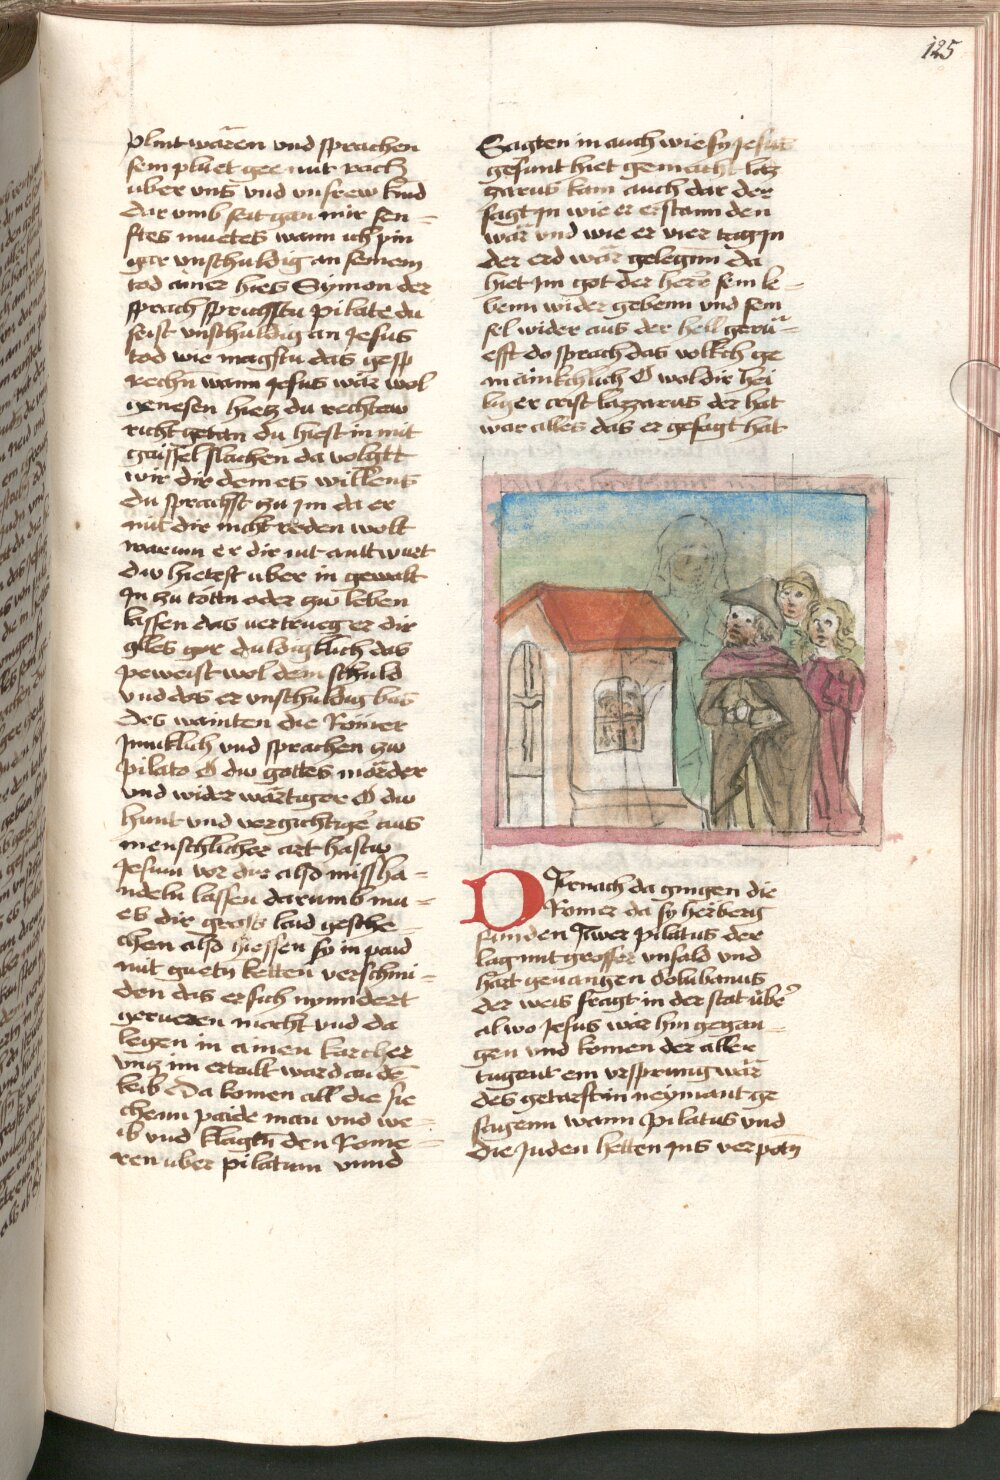 125
plint wären vnd sprachen
sein pluet gee mit rach
vber vns vnd vnsrew kind
dar vmb seit gan mir sen=
ftes muetes wann ich pin
gar vnschuldig an seinem
tod ainer hies Symon der
sprach sprichstu pilate du
seist vnschuldig an Jesus
tod wie magstu das gesp
rechn wann Jesus wär wol
genesen hietz du rechtew
richt getan du hiest in mit
gaissel slachen da volgtt
wir dir dem es willens
du sprachst zu Jm da er
mit dir nicht reden wolt
warum er dir nit anttwurt
Dw hietest vber in gewalt
Jn zu töttn oder zw leben
lassen das vertrueg er dir
alles gar duldigklich das
peweist wol dein schuld
vnd das er vnschuldig was
Des wainten die Römer
Jnniklich vnd sprachen zw
pilato O dw gottes mörder
vnd wider wärtiger O dw
hunt vnd aus
menschlicher art hastw
Jesum vor dir also missha=
ndeln lassen darumb mu=
es dir gross laid gesche=
chen also hiessen sy in paid
mit guetn ketten verschmi=
den das er sich nynndert
gerueren mocht vnd da
legen in ainen karcher
vntz im ertailt ward an dē
leib Da komen all die sie
chenn paide man vnd we=
ib vnd klagtn den Rome=
ren vber pilatum vnnd
Sagten in auch wie sy Jesus
gesunt hiet gemacht laz
zarus kam auch dar der
sagt Jn wie er erstannden
wär vnd wie er vier tag Jn
der erd wär gelegnn da
hiet Jm got der herr sein le=
benn wider gebenn vnd sein
sel wider aus der hell gerü=
efft do sprach das volkch ge
mainkchlich O wol dir hei
liger crist lazzarus der hat
war alles das er gesagt hat
DArnach da gingen die
Romer da sy herberg
funden Jwer pilatus der
lag mit grosser vnfald vnd
hart geuangen Volubanus
der weis fragt in der stat vber
al wo Jesus wär hin gegan=
gen vnd komen der aller
tugent ein vrsprung wär
des getarst in neymant ge
sagenn wann Pilatus vnd
die Juden hetten Jns verpotn